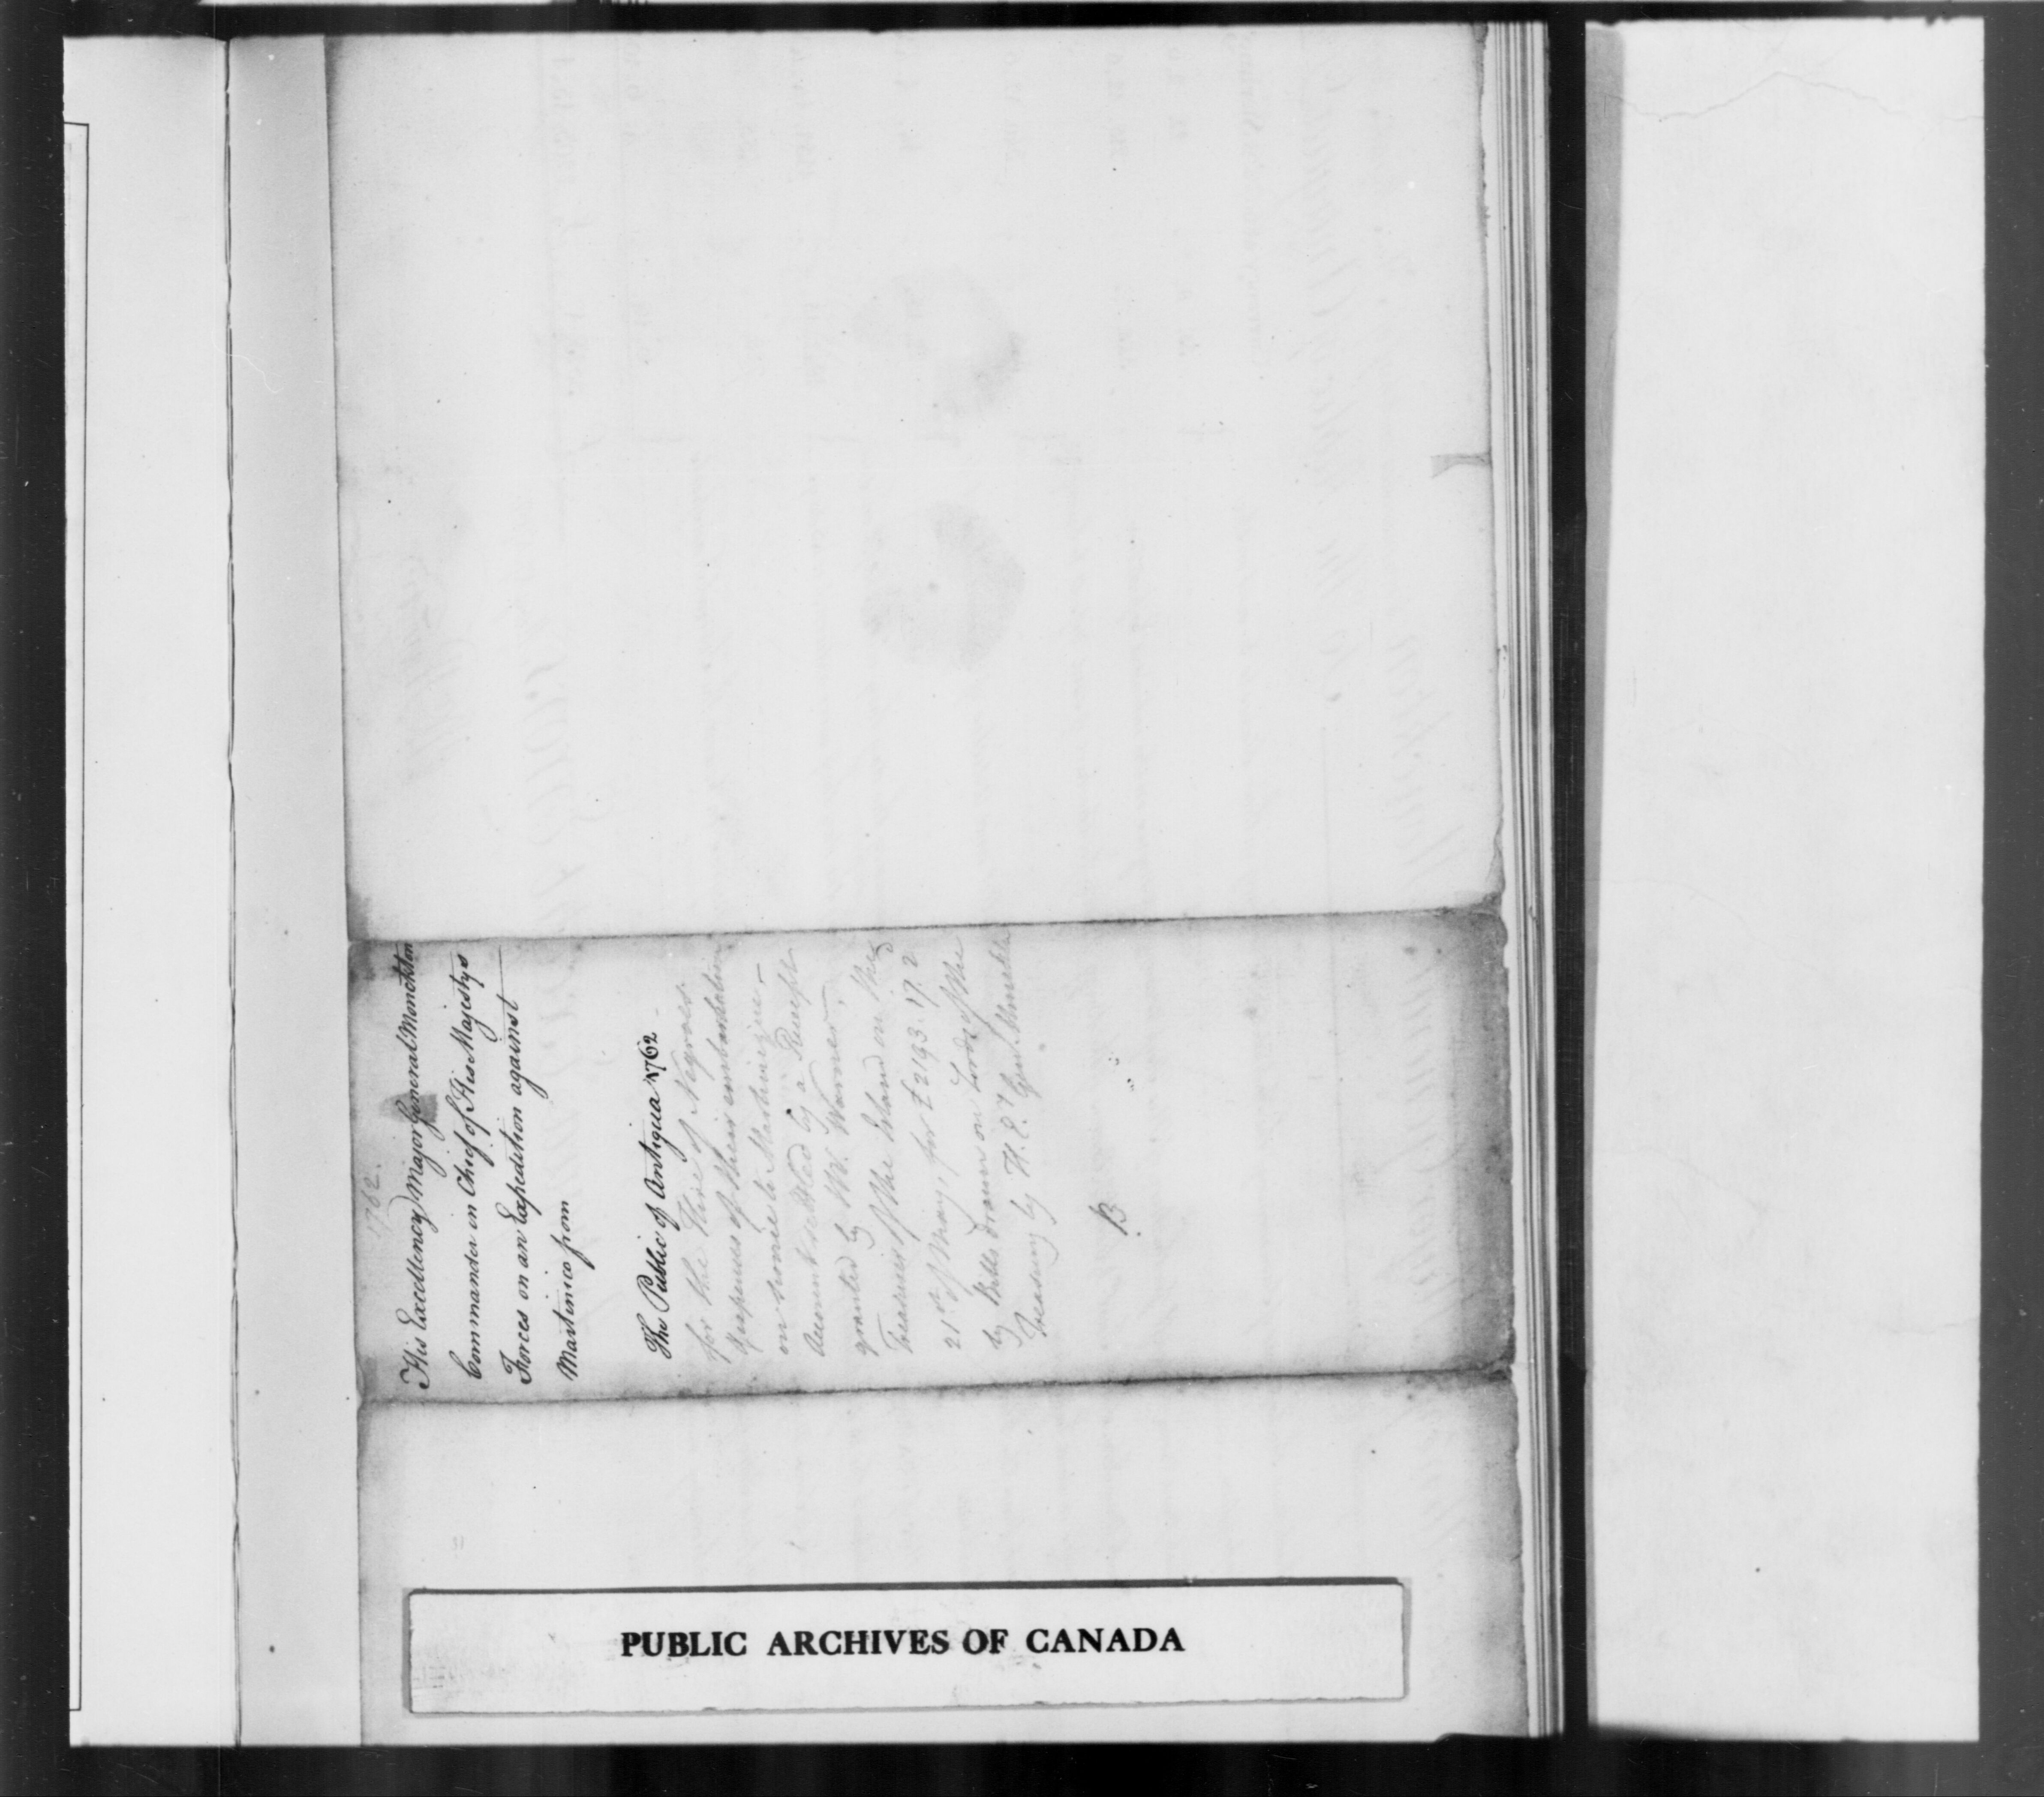 1762.
His Excellency Major General Monckton
Commander in Chief of His Majestys
Forces on an Expedition against
Martinico from
The Public of Antigua 1762
for the Hire of Negroes
& expences of their embarkation
on Service to Martinique
Account settled by a Receipt
granted by Mr. Warner,
Treasurer of the Island on the
21st of May, for £2193.17.2
by Bills drawn on Lords of the
Treasury by H.E. Genl.
B.
PUBLIC ARCHIVES OF CANADA